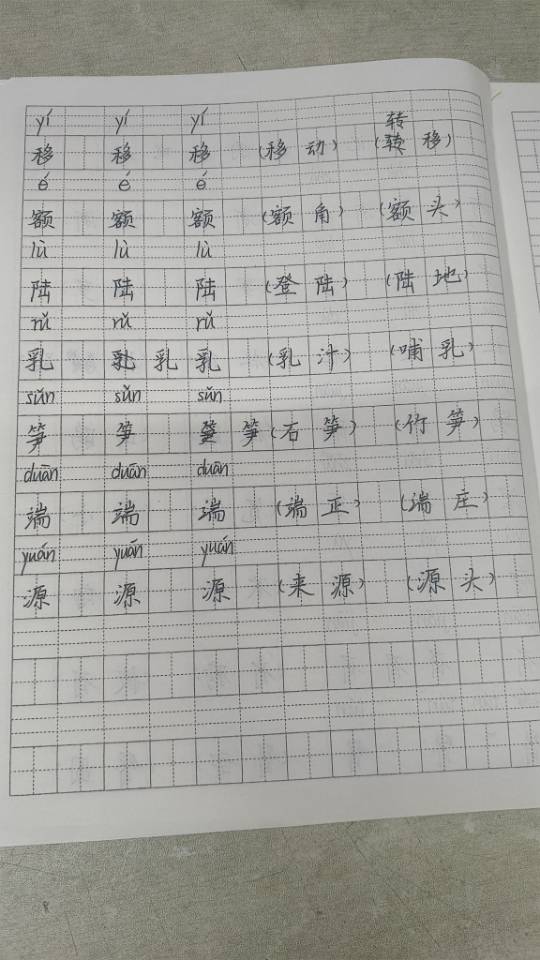 yí yí yí
移 移 移 (移动) (转移)
é é é
额 额 额 (额角) (额头)
lù lù lù
陆 陆 陆 (登陆) (陆地)
rǔ rǔ rǔ
乳 乳 乳 (乳汁) (哺乳)
sǔn sǔn sǔn
笋 笋 笋 (石笋) (竹笋)
duān duān duān
端 端 端 (端正) (端庄)
yuán yuán yuán
源 源 源 (来源) (源头)